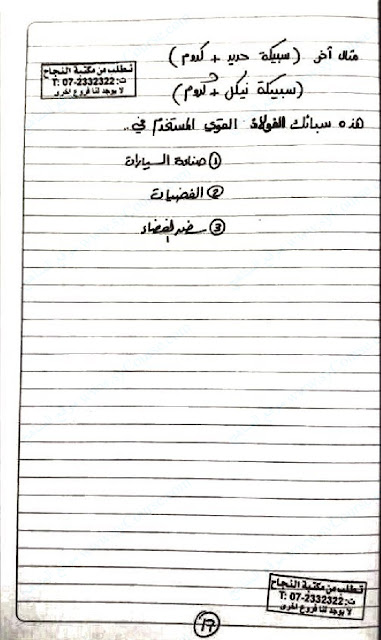 تطلب من مكتبة النجاح
ت: 07-2332322 :T
لا يوجد لنا فروع اخرى
مثال آخر (سبيكة حديد + كروم)
(سبيكة نيكل + كروم)
هذه سبائك الفولاذ القوي المستخدم في..
① صناعة السيارات
② الفضيات
③ سفن الفضاء
تطلب من مكتبة النجاح
ت: 07-2332322 :T
لا يوجد لنا فروع اخرى
١٧